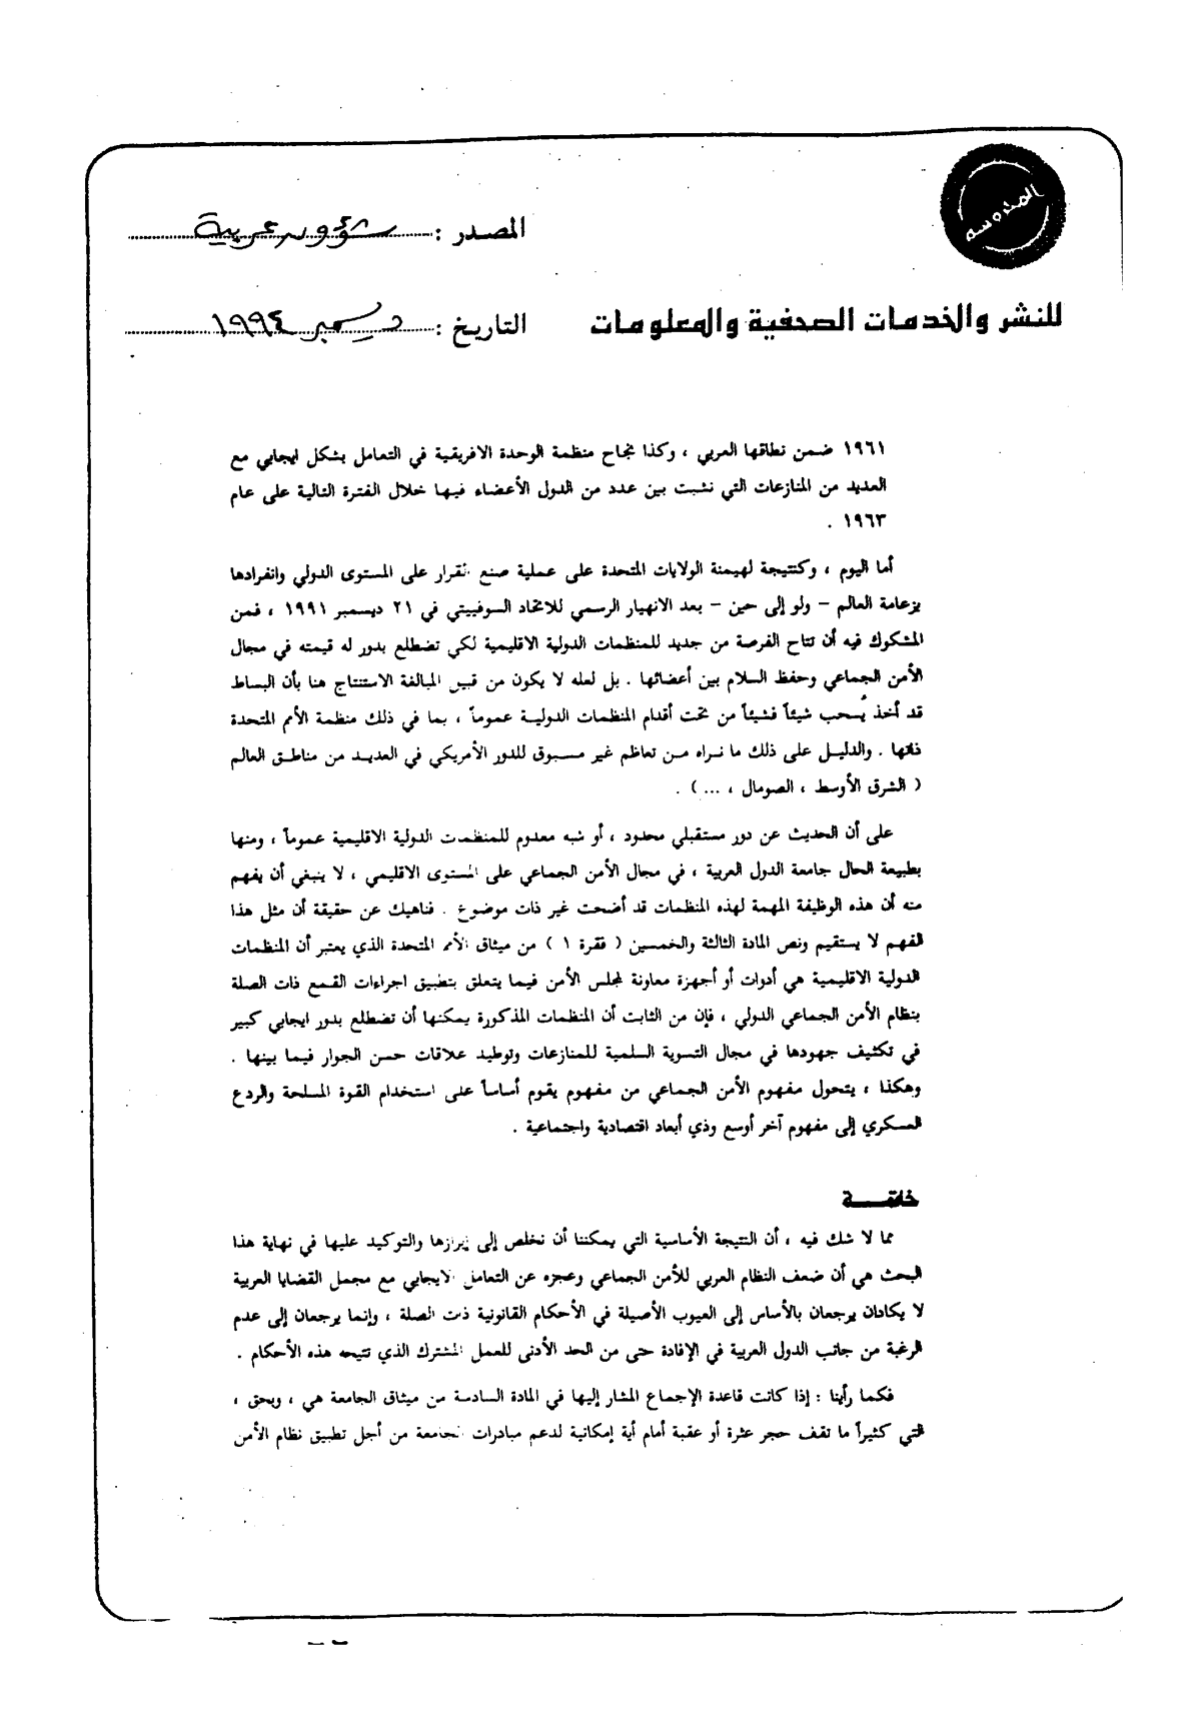 المحروسة
المصدر : شؤون عربية
للنشر والخدمات الصحفية والمعلومات
التاريخ : ديسمبر ١٩٩٤
١٩٦١ ضمن نطاقها العربي ، وكذا نجاح منظمة الوحدة الافريقية في التعامل بشكل ايجابي مع
العديد من المنازعات التي نشبت بين عدد من الدول الأعضاء فيها خلال الفترة التالية على عام
١٩٦٣ .
أما اليوم ، وكنتيجة لهيمنة الولايات المتحدة على عملية صنع القرار على المستوى الدولي وانفرادها
بزعامة العالم – ولو إلى حين – بعد الانهيار الرسمي للاتحاد السوفييتي في ٢١ ديسمبر ١٩٩١ ، فمن
المشكوك فيه أن تتاح الفرصة من جديد للمنظمات الدولية الاقليمية لكي تضطلع بدور له قيمته في مجال
الأمن الجماعي وحفظ السلام بين أعضائها . بل لعله لا يكون من قبيل المبالغة الاستنتاج هنا بأن البساط
قد أخذ يُسحب شيئاً فشيئاً من تحت أقدام المنظمات الدولية عموماً ، بما في ذلك منظمة الأمم المتحدة
ذاتها . والدليل على ذلك ما نراه من تعاظم غير مسبوق للدور الأمريكي في العديد من مناطق العالم
( الشرق الأوسط ، الصومال ، ... ) .
على أن الحديث عن دور مستقبلي محدود ، أو شبه معدوم للمنظمات الدولية الاقليمية عموماً ، ومنها
بطبيعة الحال جامعة الدول العربية ، في مجال الأمن الجماعي على المستوى الاقليمي ، لا ينبغي أن يفهم
منه أن هذه الوظيفة المهمة لهذه المنظمات قد أضحت غير ذات موضوع . فناهيك عن حقيقة أن مثل هذا
الفهم لا يستقيم ونص المادة الثالثة والخمسين ( فقرة ١ ) من ميثاق الأمم المتحدة الذي يعتبر أن المنظمات
الدولية الاقليمية هي أدوات أو أجهزة معاونة لمجلس الأمن فيما يتعلق بتطبيق اجراءات القمع ذات الصلة
بنظام الأمن الجماعي الدولي ، فإن من الثابت أن المنظمات المذكورة يمكنها أن تضطلع بدور ايجابي كبير
في تكثيف جهودها في مجال التسوية السلمية للمنازعات وتوطيد علاقات حسن الجوار فيما بينها .
وهكذا ، يتحول مفهوم الأمن الجماعي من مفهوم يقوم أساساً على استخدام القوة المسلحة والردع
العسكري إلى مفهوم آخر أوسع وذي أبعاد اقتصادية واجتماعية .
خاتمـــة
مما لا شك فيه ، أن النتيجة الأساسية التي يمكننا أن نخلص إلى إبرازها والتوكيد عليها في نهاية هذا
البحث هي أن ضعف النظام العربي للأمن الجماعي وعجزه عن التعامل الايجابي مع مجمل القضايا العربية
لا يكادان يرجعان بالأساس إلى العيوب الأصيلة في الأحكام القانونية ذات الصلة ، وإنما يرجعان إلى عدم
الرغبة من جانب الدول العربية في الإفادة حتى من الحد الأدنى للعمل المشترك الذي تتيحه هذه الأحكام .
فكما رأينا : إذا كانت قاعدة الإجماع المشار إليها في المادة السادسة من ميثاق الجامعة هي ، وبحق ،
التي كثيراً ما تقف حجر عثرة أو عقبة أمام أية إمكانية لدعم مبادرات الجامعة من أجل تطبيق نظام الأمن